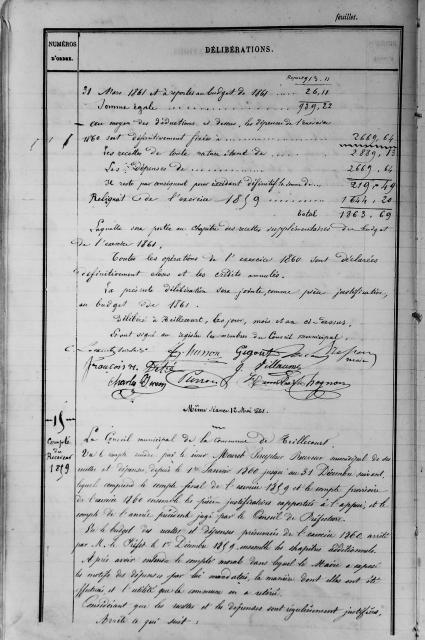 feuillet.
NUMÉROS
D'ORDRE.
DÉLIBÉRATIONS.
Report 913. 11
31 Mars 1861 et à reporter au budget de 1861 26, 11
Somme égale 939, 22
au moyen des déductions ci dessus, les dépenses de l'exercice
1860 sont définitivement fixées à 2669, 64
Les recettes de toute nature étant de 2889, 13
Les Dépenses de 2669, 64
Il reste par conséquent pour excédent définitif la somme de 219, 49
Reliquat de l'exercice 1859 1644, 20
total 1863, 69
Laquelle sera portée au chapitre des recettes supplémentaires du budget
de l'exercice 1861.
Toutes les opérations de l'exercice 1860 sont déclarées
définitivement closes et les crédits annulés.
La présente délibération sera jointe, comme pièce justificative,
au budget de 1861.
Délibéré à Reillecourt, les jour, mois et an ci-dessus.
Et ont signé au registre les membres du Conseil municipal.
Husson Gigout
maire
François N. J. Villaume
Charles Perron
Même séance 12 Mai 1861.
15
Compte
du
Receveur
1859
Le Conseil municipal de la commune de Reillecourt.
Vu le compte rendu par le sieur Receveur municipal de ses
recettes et dépenses depuis le 1er Janvier 1860 jusqu'au 31 Décembre suivant,
lequel comprend le compte final de l'exercice 1859 et le compte provisoire
de l'exercice 1860 ensemble les pièces justificatives rapportées à l'appui, et le
compte de l'année précédente jugé par le Conseil de Préfecture.
Vu le budget des recettes et dépenses présumées de l'exercice 1860, arrêté
par M. le Préfet le 1er Décembre 1859, ensemble les chapitres additionnels.
Après avoir entendu le compte moral dans lequel le Maire a exposé
les motifs des dépenses par lui mandatées, la manière dont elles ont été
effectuées et l'utilité que la commune en a retirée.
Considérant que les recettes et les dépenses sont régulièrement justifiées,
Arrête ce qui suit :